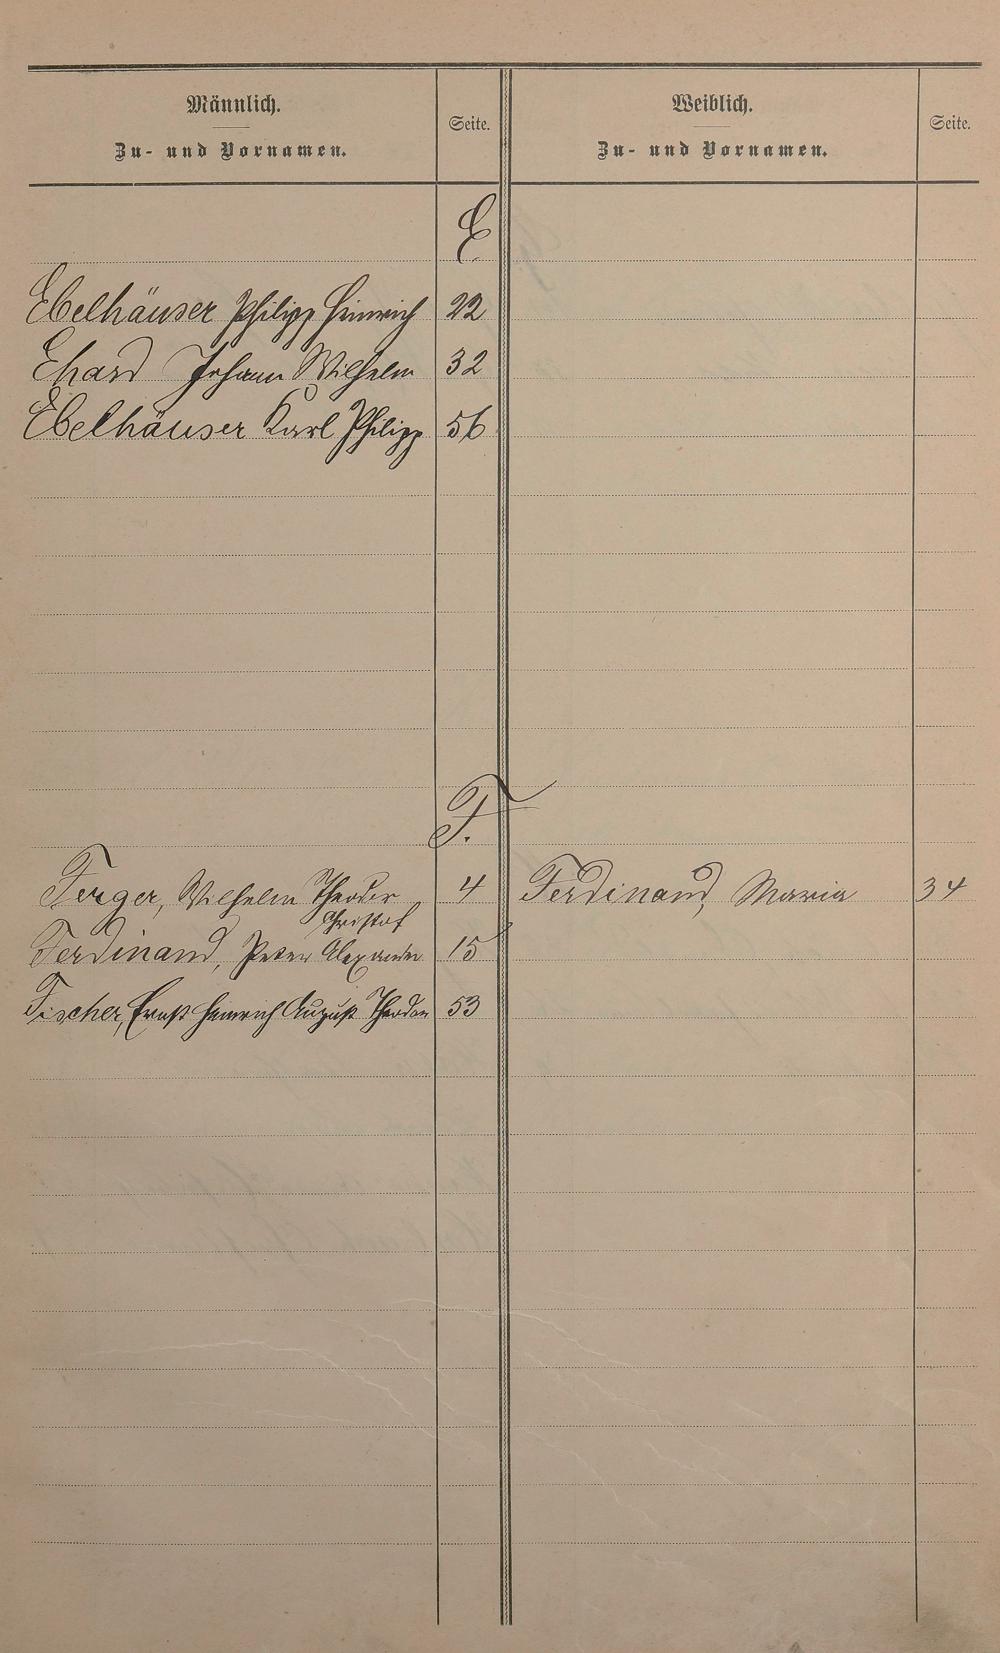 Männlich.
Zu- und Vornamen.
Seite.
Weiblich.
Zu- und Vornamen.
Seite.
E
Ebelhäuser Philipp Heinrich 22
Ehard Johann Wilhelm 32
Ebelhäuser Karl Philipp 56
F.
Ferger, Wilhelm Theodor 4 Ferdinand, Maria 34
Christof
Ferdinand, Peter Alexander 15
Fischer, Ernst Heinrich August Theodor 53